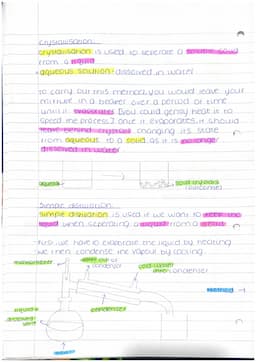 crystallisation
crystallisation is used to seperate a soluble solid
from a liquid
aqueous solution: dissolved in water
to carry out this method, you would leave your
mixture in a beaker over a period of time
until it evaporates (you could gently heat it to
speed the process) once it evaporates, it should
leave behind crystals changing its state
from aqueous to a solid as it is no longer
dissolved in water
aqueous
solid crystals
simple distillation
simple distillation is used if we want to keep the
liquid when seperating a liquid from a solid
first we have to evaporate the liquid by heating
we then condense the vapour by cooling
thermometer
condensor
cold water
condenser
condenser
liquid +
dissolved